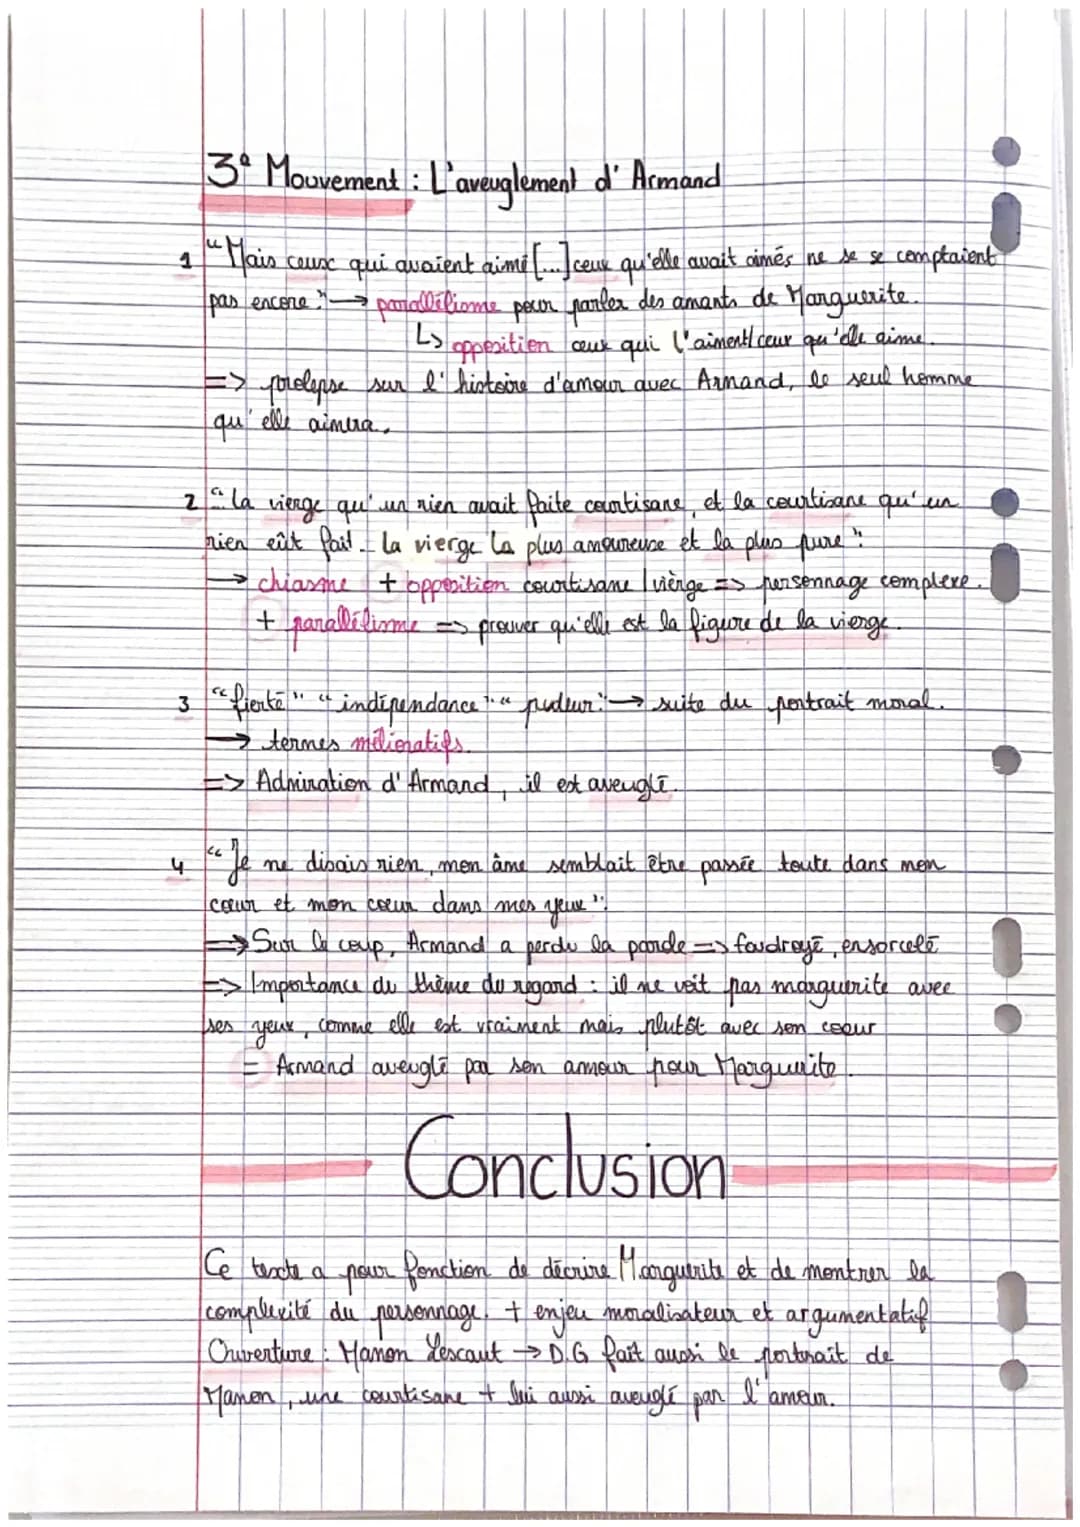 3e Mouvement : L'aveuglement d'Armand
1 "Mais ceux qui avaient aimé [...] ceux qu'elle avait aimés ne se se comptaient
pas encore" → parallélisme pour parler des amants de Marguerite.
↳ opposition ceux qui l'aiment/ceux qu'elle aime.
=> prolepse sur l'histoire d'amour avec Armand, le seul homme
qu'elle aimera.
2 "la vierge qu'un rien avait faite courtisane, et la courtisane qu'un
rien eût fait. La vierge la plus amoureuse et la plus pure":
→ chiasme + opposition courtisane / vierge => personnage complexe.
+ parallélisme => prouver qu'elle est la figure de la vierge.
3 "fierté" "indépendance" "pudeur" → suite du portrait moral.
→ termes mélioratifs.
=> Admiration d'Armand, il est aveuglé.
4 "Je ne disais rien, mon âme semblait être passée toute dans mon
cœur et mon cœur dans mes yeux":
=> Sur le coup, Armand a perdu la parole => foudroyé, ensorcelé
=> Importance du thème du regard : il ne voit pas marguerite avec
ses yeux, comme elle est vraiment mais plutôt avec son cœur
= Armand aveuglé par son amour pour Marguerite.
Conclusion
Ce texte a pour fonction de décrire Marguerite et de montrer la
complexité du personnage. + enjeu moralisateur et argumentatif
Ouverture : Manon Lescaut → D.G fait aussi le portrait de
Manon, une courtisane + lui aussi aveuglé par l'amour.